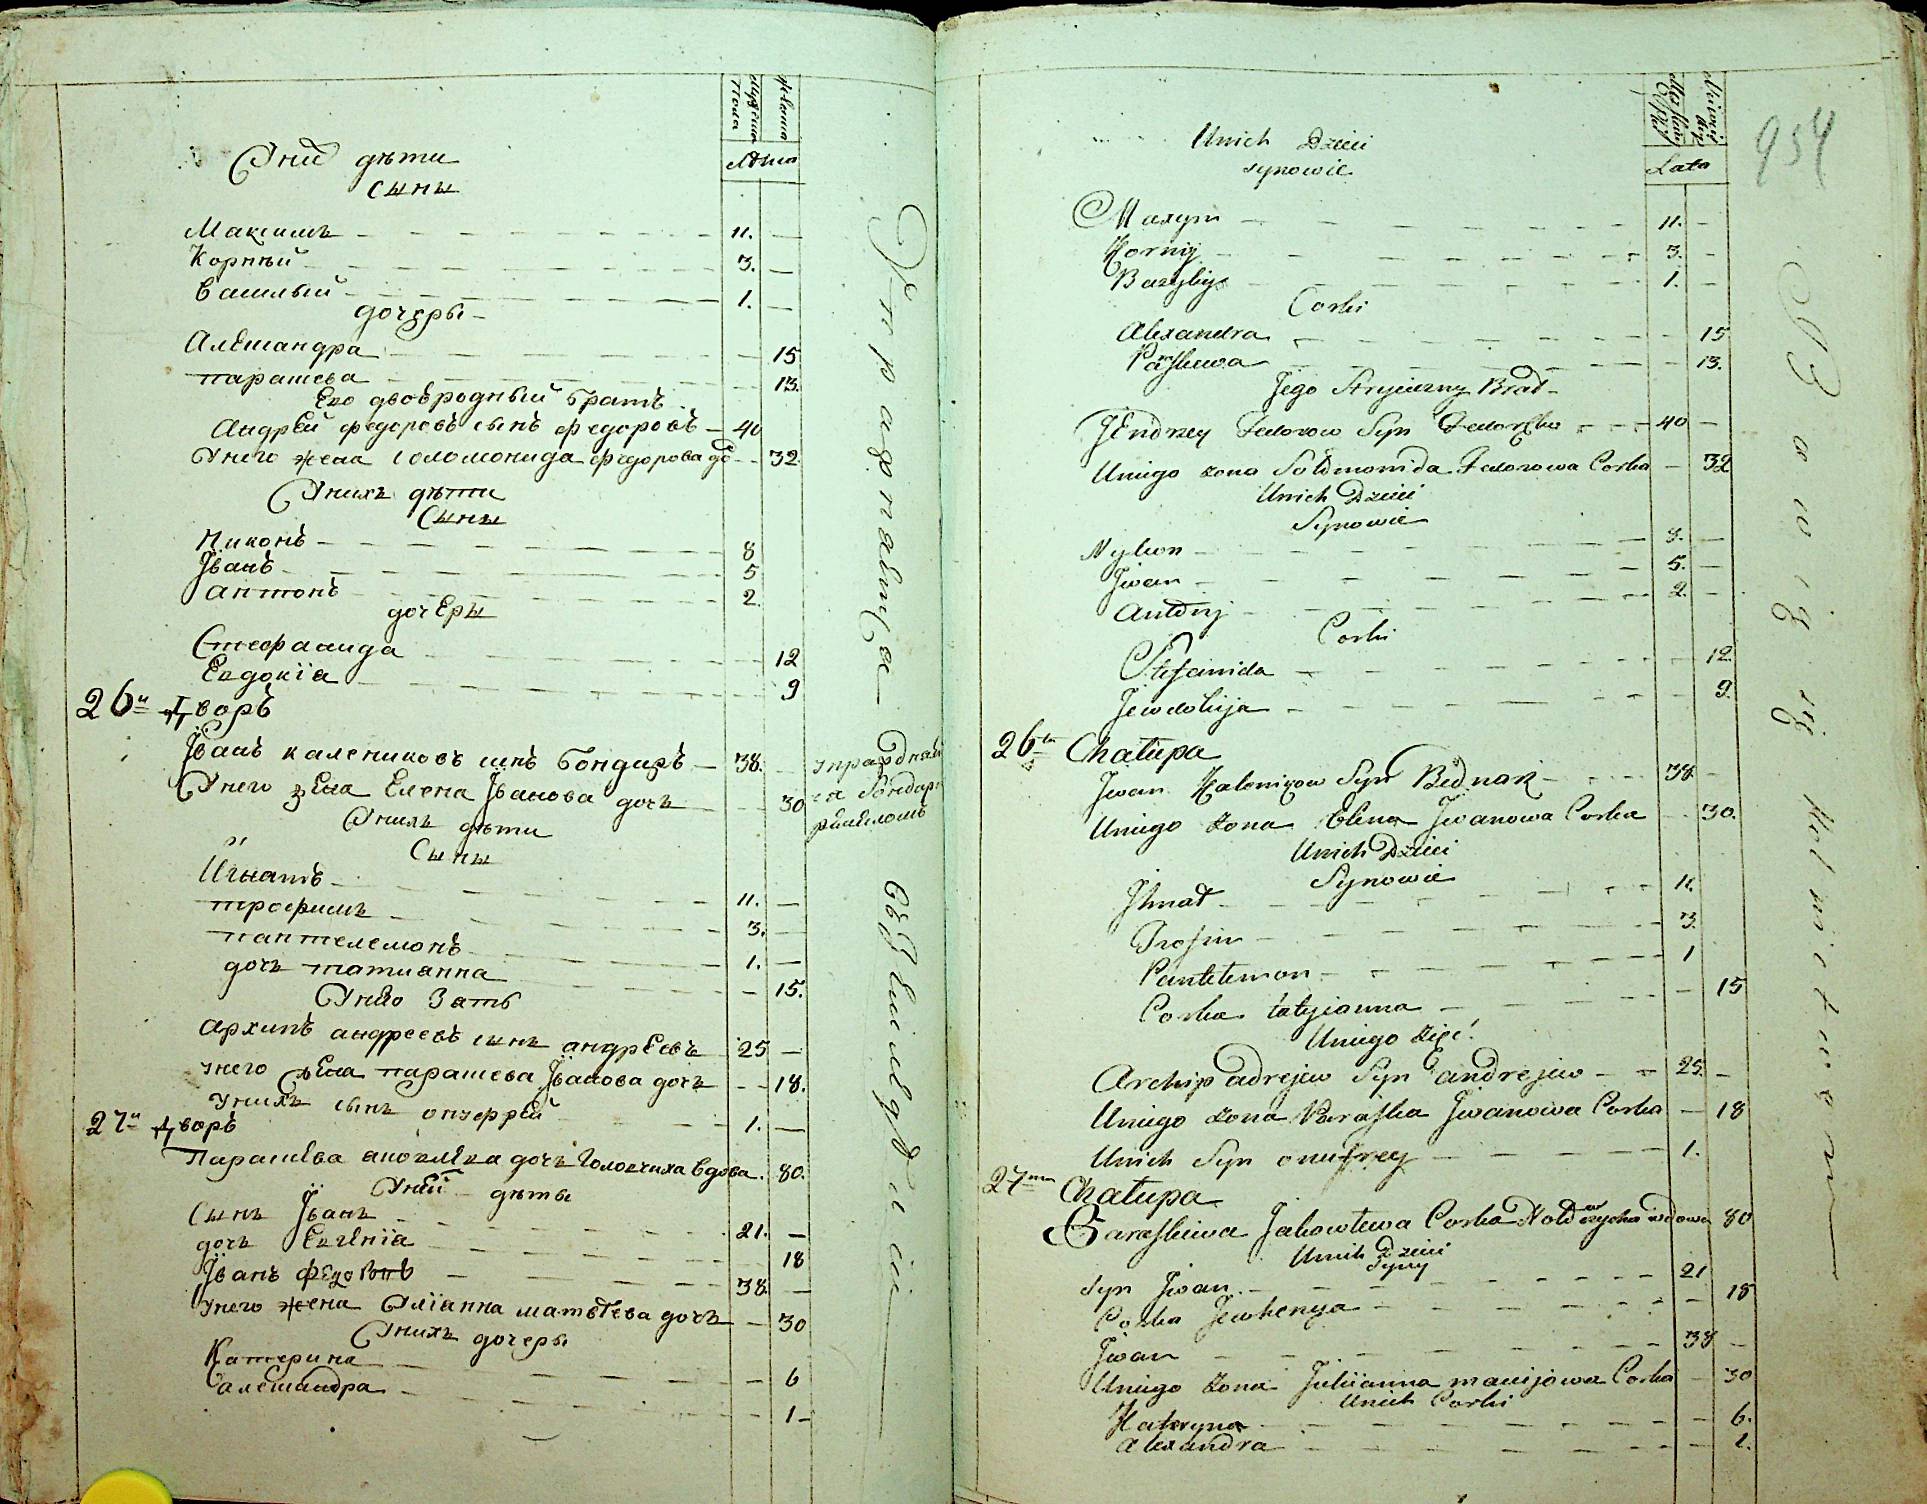 Мужеска пола
Женска
Лѣта
У них дѣти
сыны
Максимъ - 11. -
Корнѣй - 3. -
Василий - 1. -
дочеры -
Алеѯандра - 15
парасѣва - 13.
Его двоюродный братъ
андрей федоровъ сынъ федоровъ - 40
У него жена соломонида федорова до - 32
У нихъ дѣти
Сыны
Никонъ - 8
Іванъ - 5
антонъ - 2
дочеры
Стефанида - 12
Евдокіа - 9
26й дворъ
Іванъ калениковъ снъ бондаръ - 38. -
У него жена Елена Іванова дочъ - 30
У нихъ дѣти
Сыны
Игнатъ - 11. -
трофимъ - 3. -
пантелемонъ - 1. -
дочъ татианна - 15.
У него зать
архипъ андреевъ сынъ андреевъ 25 -
у него жена парасева Іванова дочъ - 18.
у нихъ сынъ онуфрѣй - 1. -
27й дворъ
Парасѣва дочъ вдова. 80.
У ней дѣты
Сынъ Іванъ - 21. -
дочъ Евгеніа - 18
Іванъ федоровъ - 38. -
У него жена Юліанна матвѣева дочъ - 30
У нихъ дочеры
Катерина - 6
алеѯандра - 1 -
954
Lata
Unich Dzieci
synowie
Maxym - 11. -
Korniy - 3. -
Bazyliy - 1. -
Corki
Alexandra - 15
Paraskewa - 13.
Jego Stryieczny Brat -
Jendrzey Fedorow Syn Fedorzko - 40 -
Uniego zona Sołomonida Fedorowa Corka - 32
Unich Dzieci
Synowie
Nykon - 8. -
Jwan - 5. -
Antoniy - 2. -
Corki
Stefanida - 12.
Jewdokija - 9.
26ta Chałupa
Jwan Kalenikow Syn Bednarz - 38 -
Uniego zona Elena Jwanowa Corka - 30.
Unich Dzieci
Synowie
Jhnat - 11.
Trofim - 3.
Pantelemon - 1
Corka tatyianna - 15
Uniego zięć
Archip adrejew Syn andrejew - 25. -
Uniego zona Paraska Jwanowa Corka - 18
Unich Syn onufrey - 1.
27ma Chałupa
Paraskiewa Jakowlewa Corka wdowa 80
Unich Dzieci
Syny
Syn Jwan - 21
Corka Jewhenya - 18
Jwan - 38 -
Uniego zona Juliianna macijowa Corka - 30
Unich Corki
Kateryna - 6.
alexandra - 1.